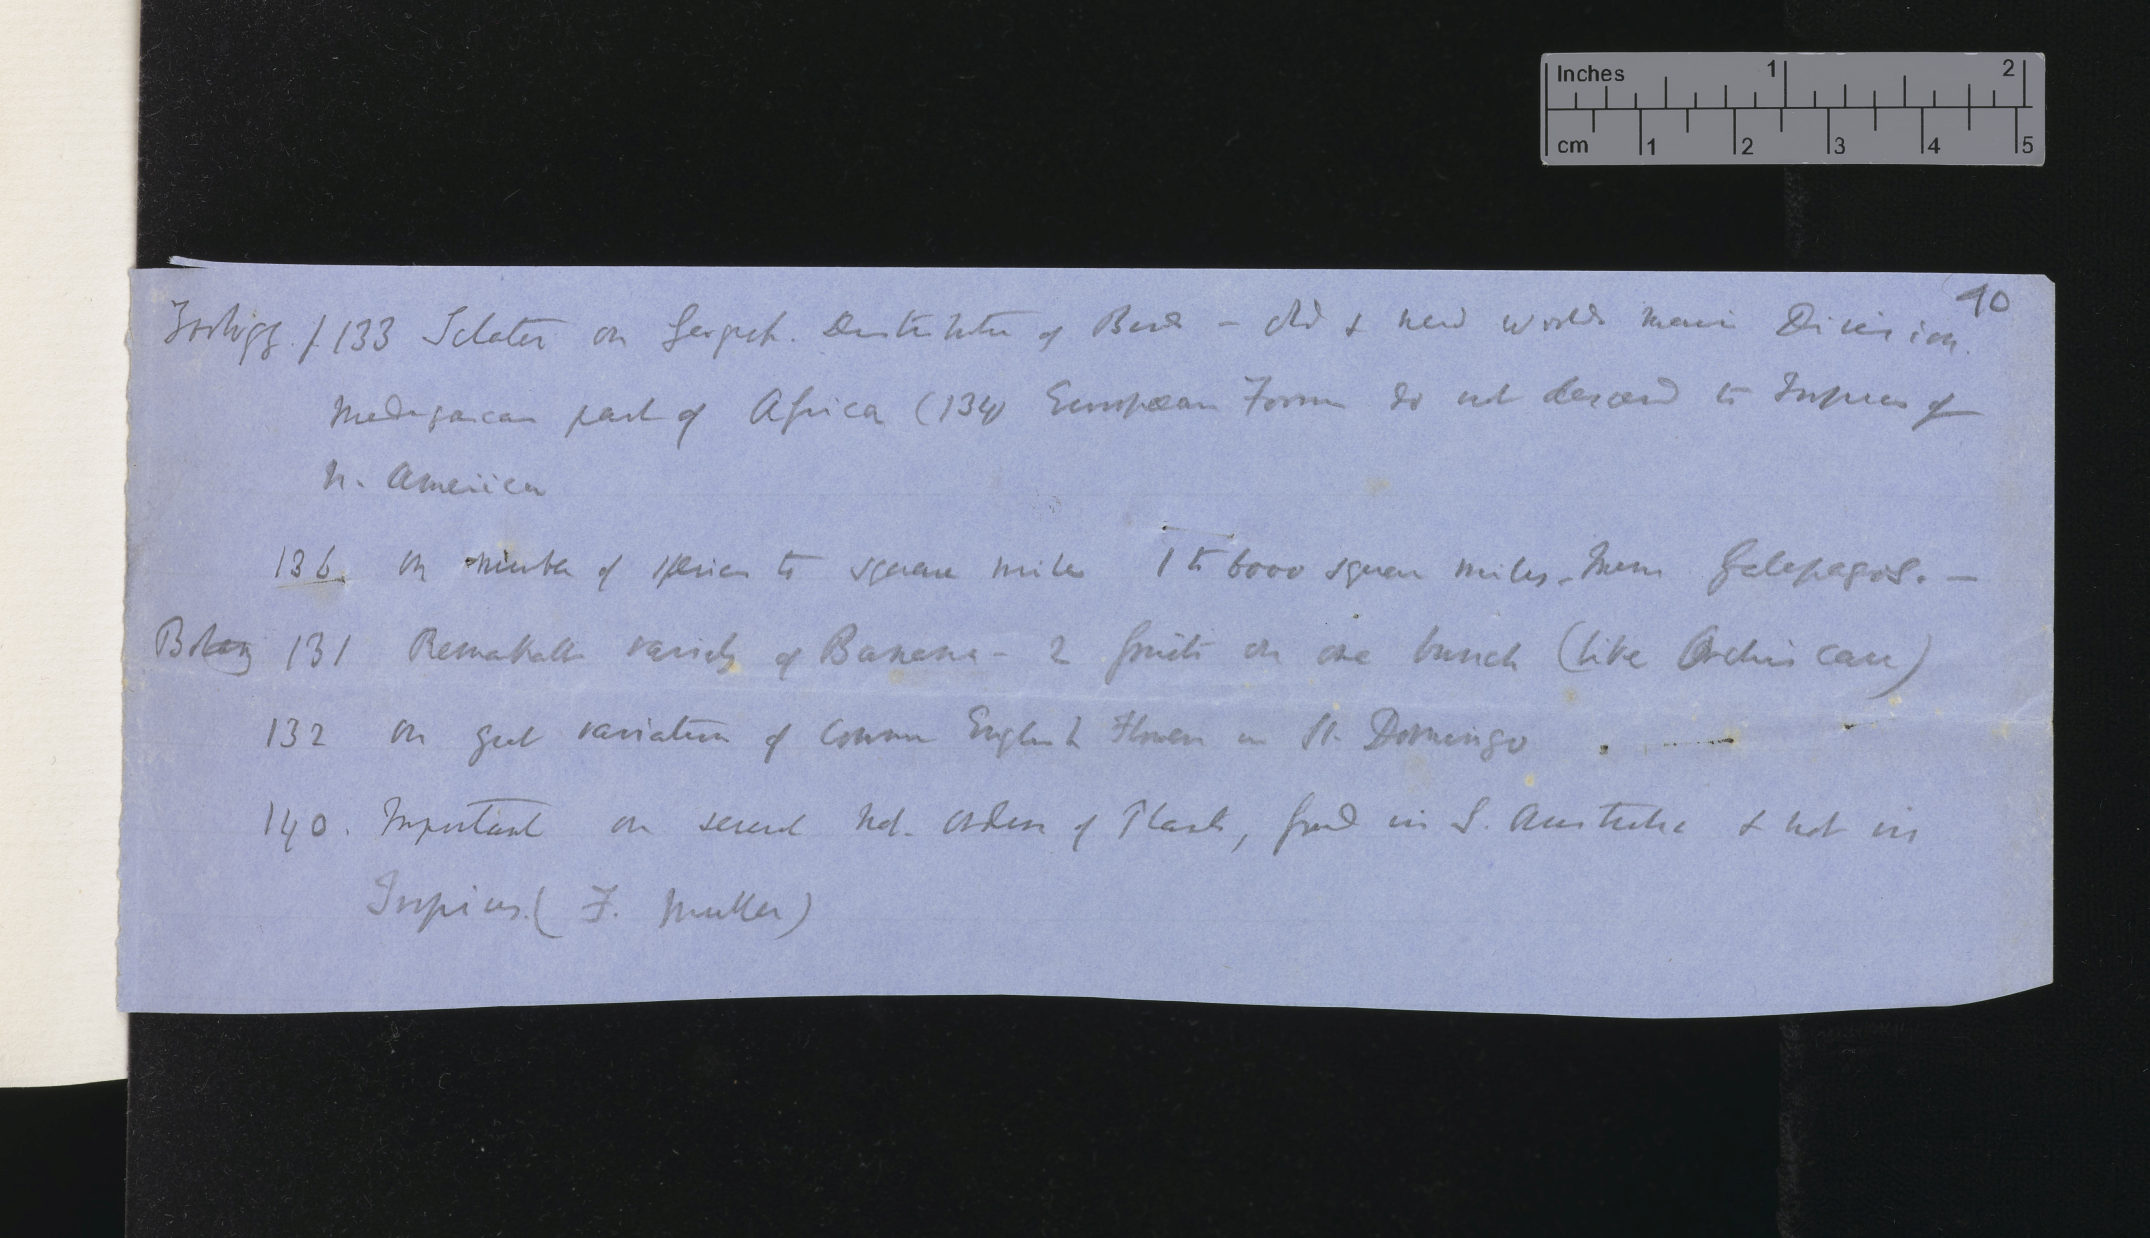 Inches 1 2
cm 1 2 3 4 5
40
Zoology / 133 Sclater on Geograph. Distribution of Birds – old & new worlds main Division.
Madagascar part of Africa (134) European Forms do not descend to Tropics of
N. America
136. On number of species to square miles 1 to 6000 square miles. Galapagos. —
Botany 131 Remarkable variety of Banana – 2 fruits on one bunch (like Orchis case)
132 On great variation of Common English Flowers in St. Domingo
140. Important on several Nat. Orders of Plants, found in S. Australia & not in
Tropics. (F. Muller)